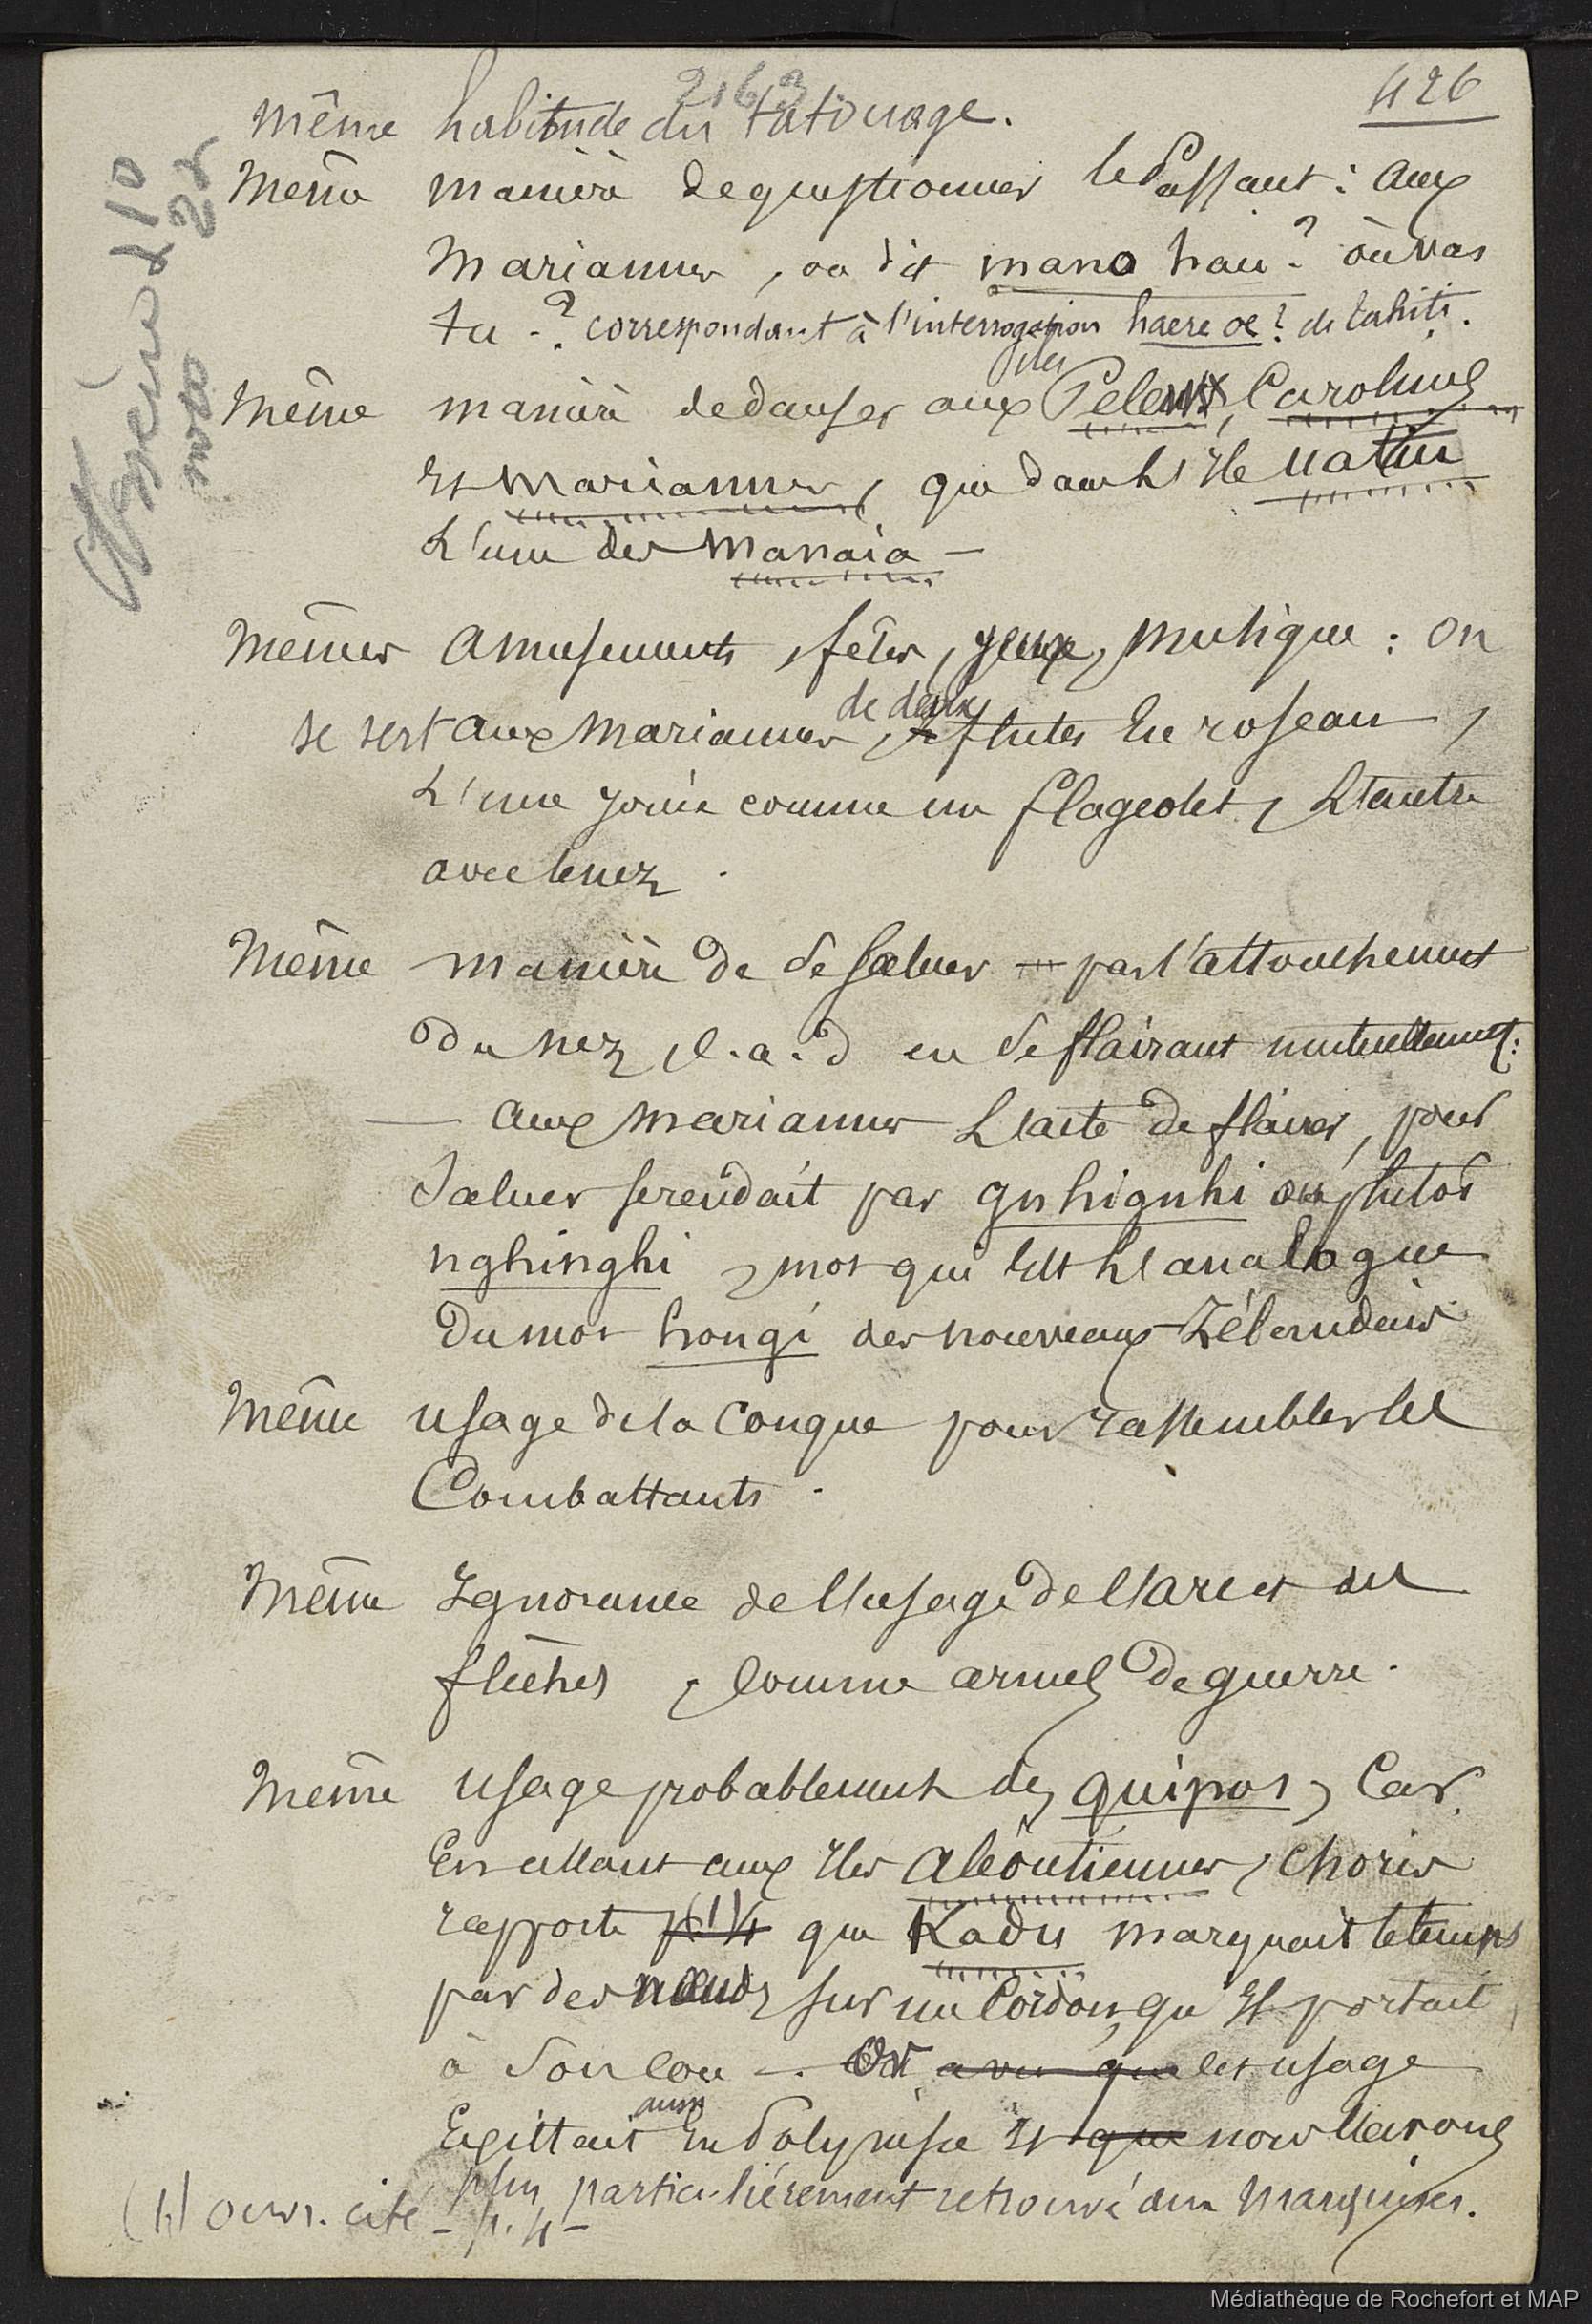 2163
426
même habitude du tatouage.
même manière de questionner le Passant : aux
mariannes, on dit mano hau ? où vas
tu - ? correspondant à l'interrogation haere oe ? de tahiti.
îles
même manière de danser aux Peleux, Carolines
et mariannes, que dans l'île uatiu
L'une des manaia -
mêmes amusements, fêtes, jeux, musique : on
de deux
se sert aux mariannes, flutes en roseau,
L'une jouée comme un flageolet, L'autre
avec le nez.
même manière de se saluer - par l'attouchement
du nez, c.a.d en se flairant mutuellement :
— aux mariannes L'acte de flairer, pour
saluer se rendait par gnhignhi ou plutôt
nghinghi, mot qui est l'analogue
du mot hongi des nouveaux Zélandais
même usage de la conque pour rassembler les
Combattants.
même Ignorance de l'usage de l'arc et des
flèches, comme armes de guerre.
même usage probablement des quipos, car
En allant aux îles aléoutiennes, choris
rapporte p. 4 (1) que Kadu marquait le temps
par des nœuds sur un cordon, qu'il portait
à son cou -. Or a vu que cet usage
aussi
Existait en Polynésie et que nous l'avons
plus particulièrement retrouvé aux marquises.
(1) ouvr. cité - p. 4 -